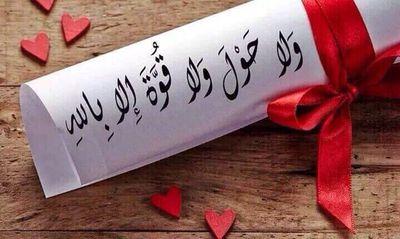 وَلا حَوْلَ وَلا قُوَّةَ إِلا بِاللهِ